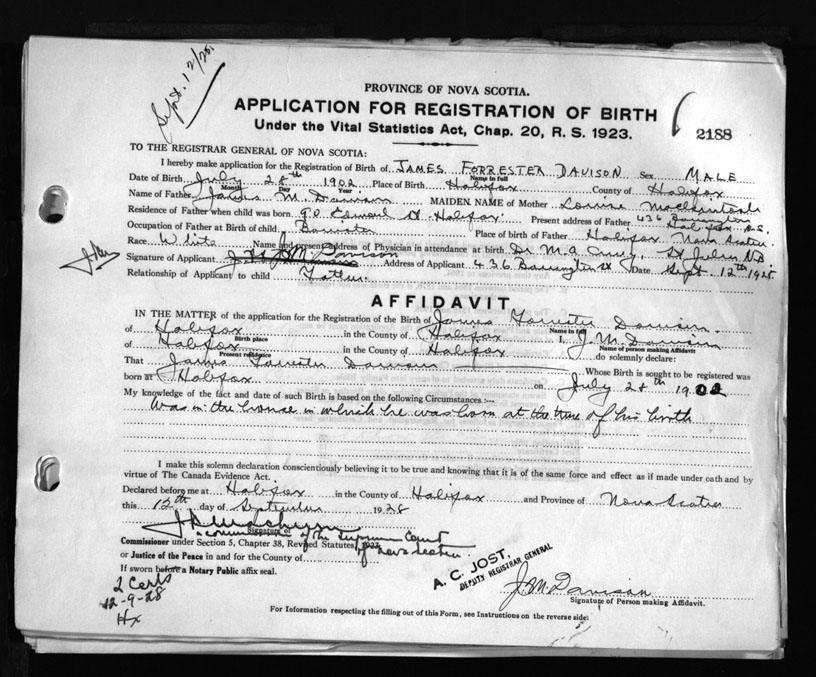 Sept. 12/28.
PROVINCE OF NOVA SCOTIA.
APPLICATION FOR REGISTRATION OF BIRTH
2188
Under the Vital Statistics Act, Chap. 20, R. S. 1923.
TO THE REGISTRAR GENERAL OF NOVA SCOTIA:
I hereby make application for the Registration of Birth of JAMES FORRESTER DAVISON Sex MALE
Name in full
Date of Birth July 28th 1902 Place of Birth Halifax County of Halifax
Month Day Year
Name of Father James M. Davison MAIDEN NAME of Mother Louise MacKintosh
Residence of Father when child was born Edward St. Halifax Present address of Father 436 Barrington Halifax N.S.
Occupation of Father at Birth of child Barrister Place of birth of Father Halifax Nova Scotia
Race White Name and present address of Physician in attendance at birth Dr. M. A. St. John N.B
Signature of Applicant J. M. Davison Address of Applicant 436 Barrington St Date Sept 12th 1928.
Relationship of Applicant to child Father.
AFFIDAVIT
IN THE MATTER of the application for the Registration of the Birth of James Forrester Davison.
Name in full
of Halifax in the County of Halifax I, J. M. Davison
Birth place Name of person making Affidavit
of Halifax in the County of Halifax do solemnly declare:
Present residence
That James Forrester Davison Whose Birth is sought to be registered was
born at Halifax on July 28th 1902
My knowledge of the fact and date of such Birth is based on the following Circumstances:—
Was in the house in which he was born at the time of his birth
I make this solemn declaration conscientiously believing it to be true and knowing that it is of the same force and effect as if made under oath and by
virtue of The Canada Evidence Act.
Declared before me at Halifax in the County of Halifax and Province of Nova Scotia
this 12th day of September 1928
Signature of
Commissioner of the Supreme Court
Commissioner under Section 5, Chapter 38, Revised Statutes, 1923 of Nova Scotia.
or Justice of the Peace in and for the County of
If sworn before a Notary Public affix seal.
A. C. JOST,
DEPUTY REGISTRAR GENERAL
2 Certs
12-9-28
Hx
J. M. Davison
Signature of Person making Affidavit.
For Information respecting the filling out of this Form, see Instructions on the reverse side: